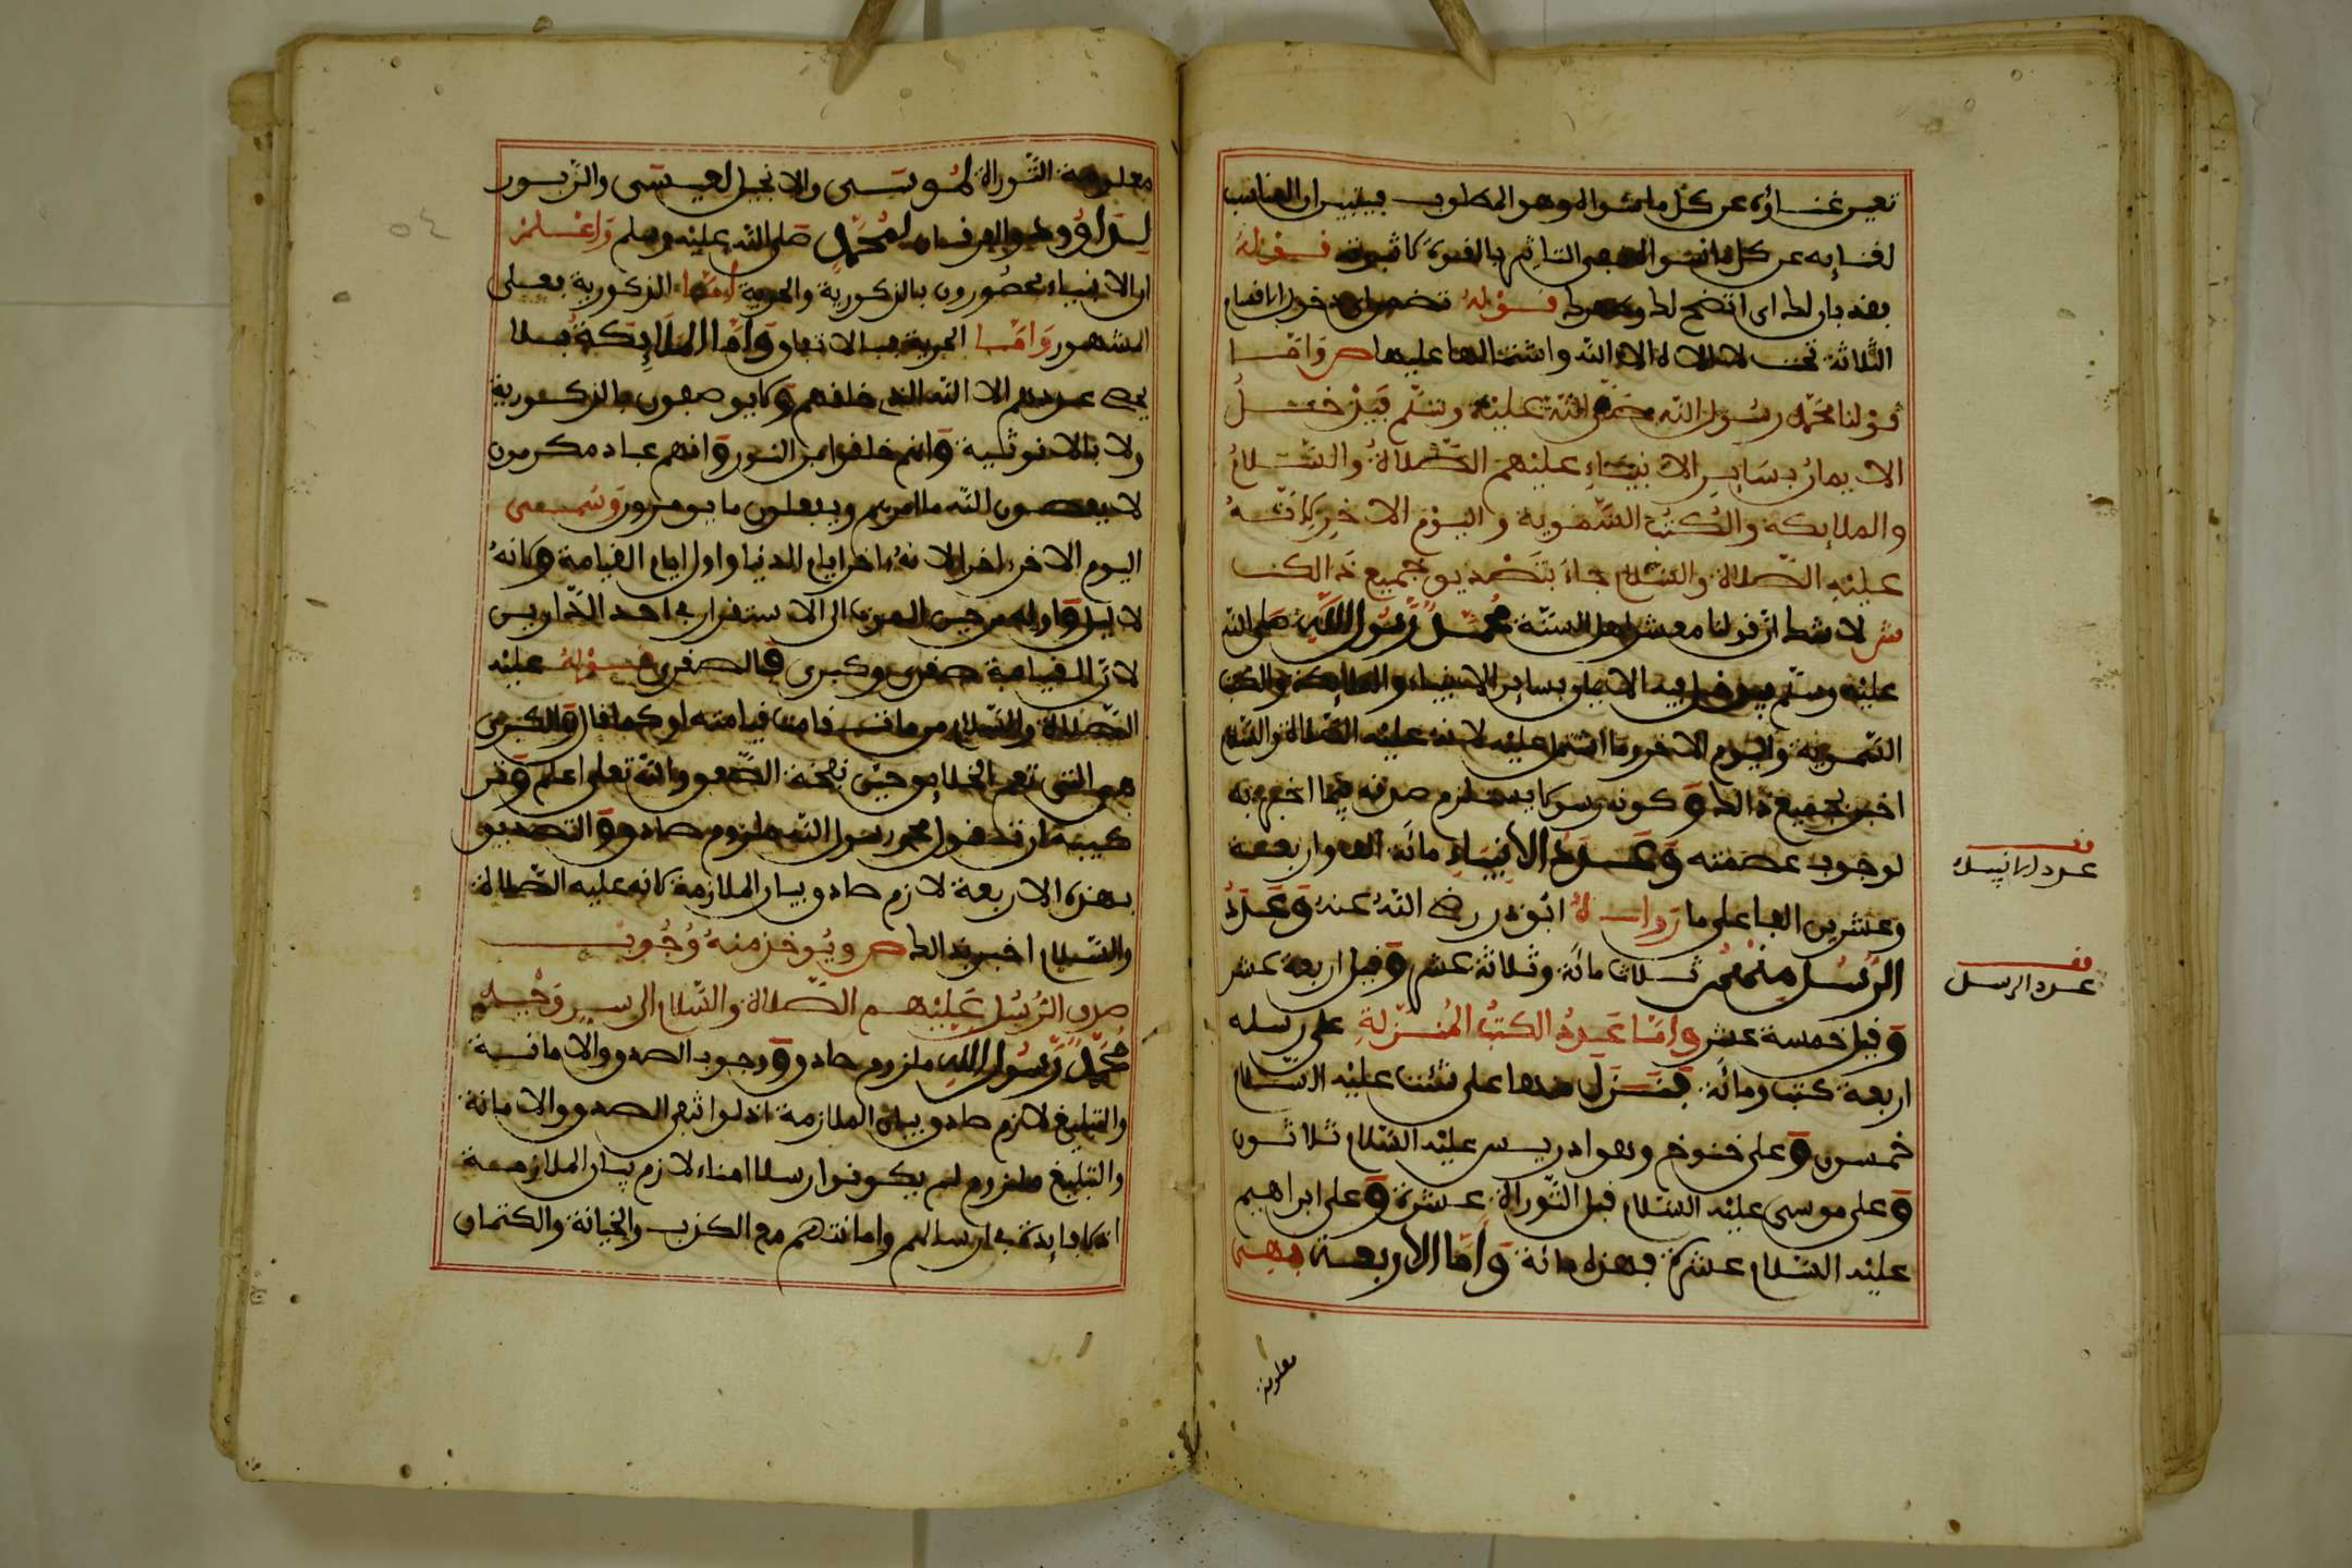 تعين غناؤه عن كل ما سواه وهو المطلوب
لغنائه عن كل ما سواه التأثير بالقوة قوله
فقد بان لك اي اتضح لك قوله تضمن دخول الاقسام
الثلاثة تحت لا اله الا الله واشتمالها عليها ص واما
قولنا محمد رسول الله صلى الله عليه وسلم فيدخل
الايمان بسائر الانبياء عليهم الصلاة والسلام
والملائكة والكتب السموية واليوم الاخر لانه
عليه الصلاة والسلام جاء بتصديق جميع ذالك
ش لا شك ان قولنا معشر اهل السنة محمد رسول الله صلى الله
عليه وسلم يدخل فيه الايمان بسائر الانبياء والملائكة والكتب
السموية واليوم الاخر وما اشتمل عليه لانه عليه الصلاة والسلام
اخبر بجميع ذالك وكونه رسولا يستلزم صدقه فيما اخبر به
لوجوب عصمته وعدد الانبياء مائة الف واربعة
وعشرين الفا على ما رواه ابو ذر رضي الله عنه وعدد
الرسل منهم ثلاث مائة وثلاثة عشر وقيل اربعة عشر
وقيل خمسة عشر واما عدد الكتب المنزلة على رسله
اربعة كتب ومائة فنزل منها على شئت عليه السلام
خمسون وعلى خنوخ وهو ادريس عليه السلام ثلاثون
وعلى موسى عليه السلام قبل التوراة عشرة وعلى ابراهيم
عليه السلام عشرة فهذه مائة واما الاربعة فهي
معلومة
قف
عدد الانبياء
قف
عدد الرسل
معلومة التوراة لموسى والانجيل لعيسى والزبور
لداوود والفرقان لمحمد صلى الله عليه وسلم واعلم
ان الانبياء محصورون بالذكورية والحرية اما الذكورية فعلى
المشهور واما الحرية فبالاتفاق واما الملائكة فلا
يحصي عددهم الا الله الذي خلقهم ولا يوصفون بالذكورية
ولا بالانوثية وانهم خلقوا من النور وانهم عباد مكرمون
لا يعصون الله ما امرهم ويفعلون ما يومرون وسمي
اليوم الاخر اخرا لانه اخر ايام الدنيا واول ايام القيامة ولانه
لا ليل واوله من حين الموت الى الاستقرار في احد الدارين
لان القيامة صغرى وكبرى فالصغرى قوله عليه
الصلاة والسلام من مات قامت قيامته او كما قال والكبرى
هي التي تعم الخلائق حين نفخة الصعق والله تعلى اعلم
محمد رسول الله ملزوم صادق والتصديق
بهذه الاربعة لازم صادق بيان الملازمة لانه عليه الصلاة
والسلام اخبر بذالك ص ويوخذ منه وجوب
صدق الرسل عليهم الصلاة والسلام
محمد رسول الله ملزوم صادق ووجوب الصدق والامانة
والتبليغ لازم صادق بيان الملازمة اذ لو انتفى الصدق والامانة
والتبليغ ملزوم لم يكونوا رسلا امناء لازم بيان الملازمة
لا فايدة في ارسالهم وامانتهم مع الكذب والخيانة والكتمان
٥٤